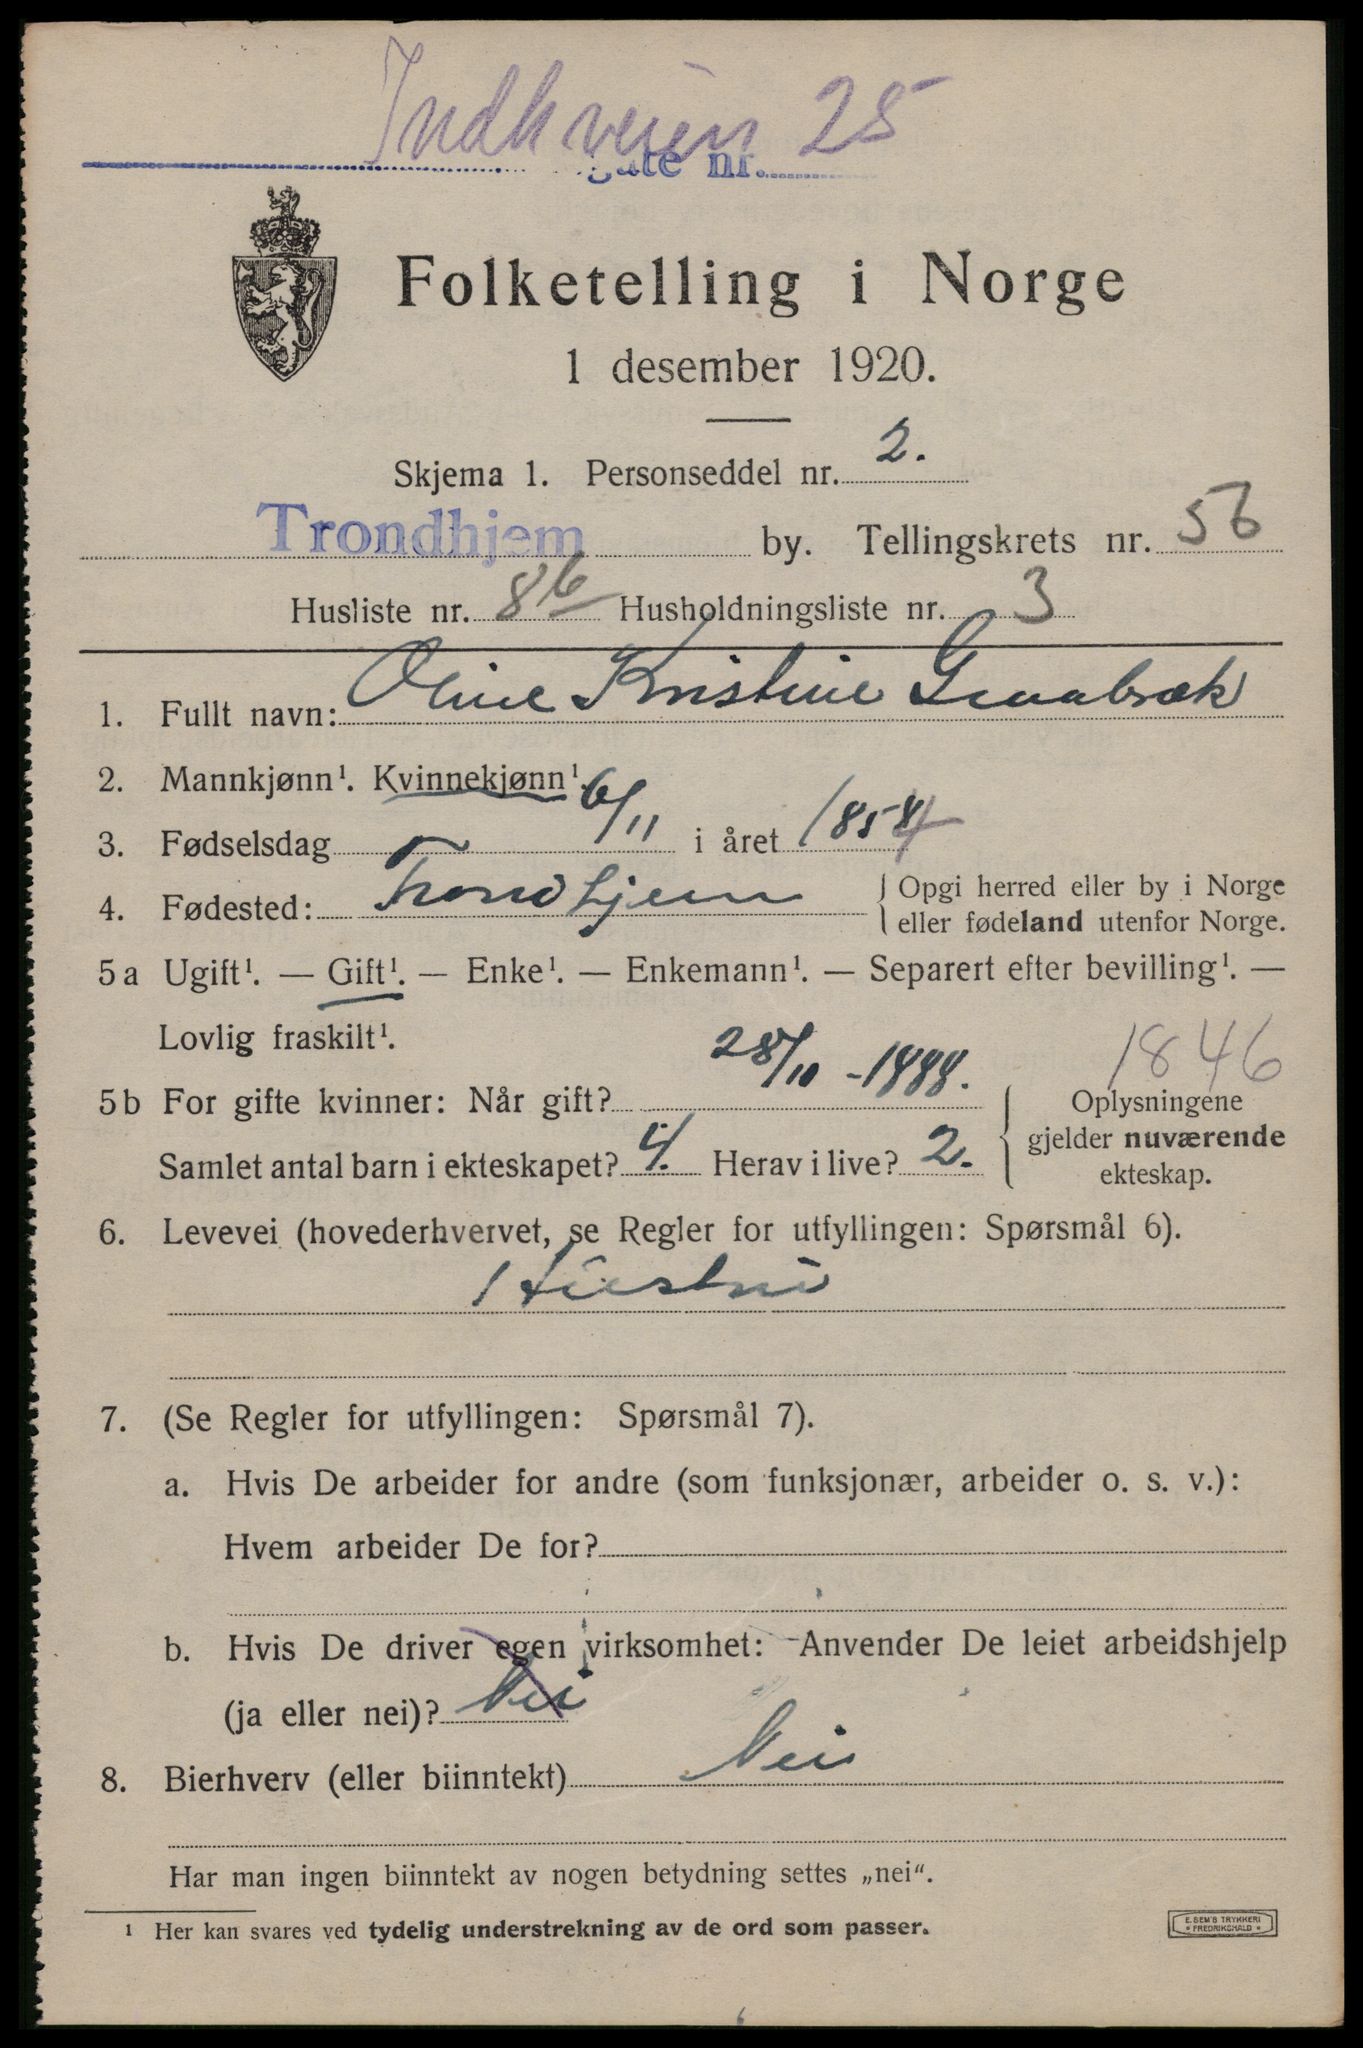 Indhveien 25
gate nr.
Folketelling i Norge
1 desember 1920.
Skjema 1. Personseddel nr. 2.
Trondhjem by. Tellingskrets nr. 56
Husliste nr. 86 Husholdningsliste nr. 3
1. Fullt navn: Oline Kristine Graabræk
2. Mannkjønn¹. Kvinnekjønn¹.
3. Fødselsdag 6/11 i året 1854
4. Fødested: Trondhjem { Opgi herred eller by i Norge
eller fødeland utenfor Norge.
5a Ugift¹. — Gift¹. — Enke¹. — Enkemann¹. — Separert efter bevilling¹. —
Lovlig fraskilt¹.
1846
5b For gifte kvinner: Når gift? 28/10 - 1888. { Oplysningene
gjelder nuværende
ekteskap.
Samlet antal barn i ekteskapet? 4. Herav i live? 2.
6. Levevei (hovederhvervet, se Regler for utfyllingen: Spørsmål 6).
Hustru
7. (Se Regler for utfyllingen: Spørsmål 7).
a. Hvis De arbeider for andre (som funksjonær, arbeider o. s. v.):
Hvem arbeider De for?
b. Hvis De driver egen virksomhet: Anvender De leiet arbeidshjelp
(ja eller nei)? Nei
8. Bierhverv (eller biinntekt) Nei
Har man ingen biinntekt av nogen betydning settes „nei“.
¹ Her kan svares ved tydelig understrekning av de ord som passer.
E. SEM'S TRYKKERI
* FREDRIKSHALD *